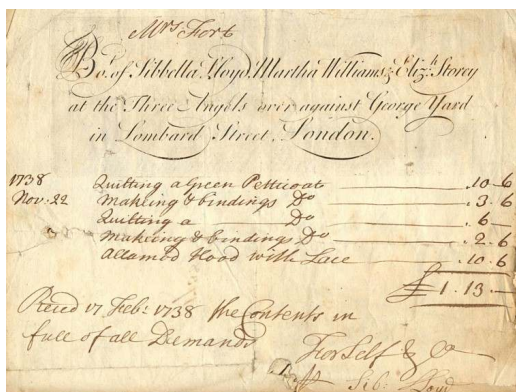 Mrs Fort
Bot. of Sibbella Lloyd, Martha Williams & Elizh. Storey
at the Three Angels over against George Yard
in Lombard Street, London.
1738 Quilting a Green Petticoat .10 6
Nov. 22 Makeing & bindings Do .3. 6
Quilting a Do .6
Makeing & bindings Do .2. 6
Hood with Lace .10. 6
£ 1.13.-
Reced 17 Feb: 1738 the Contents in
full of all Demands
For Self & Co
Sib: Lloyd